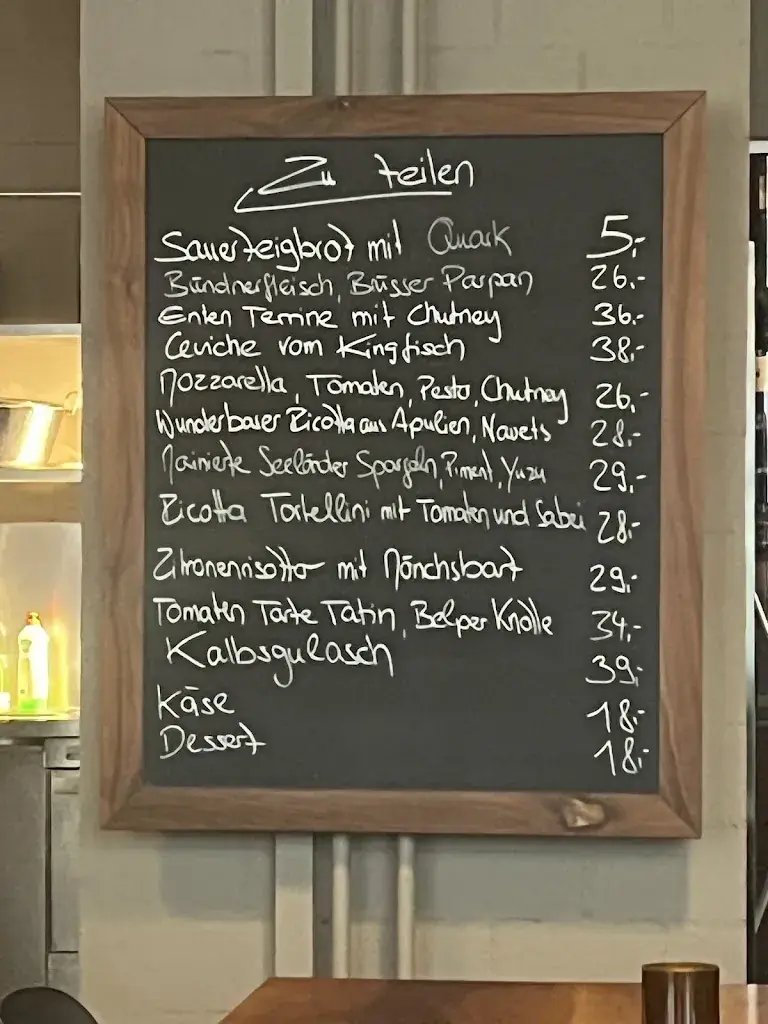 Zu teilen
Sauerteigbrot mit Quark 5.-
Bündnerfleisch, Büsser Parpan 26.-
Enten Terrine mit Chutney 36.-
Ceviche vom Kingfisch 38.-
Mozzarella, Tomaten, Pesto, Chutney 26.-
Wunderbarer Ricotta aus Apulien, Navets 28.-
Marinierte Seeländer Spargeln, Piment, Yuzu 29.-
Ricotta Tortellini mit Tomaten und Salbei 28.-
Zitronenrisotto mit Mönchsbart 29.-
Tomaten Tarte Tatin, Belper Knolle 34.-
Kalbsgulasch 39.-
Käse 18.-
Dessert 18.-